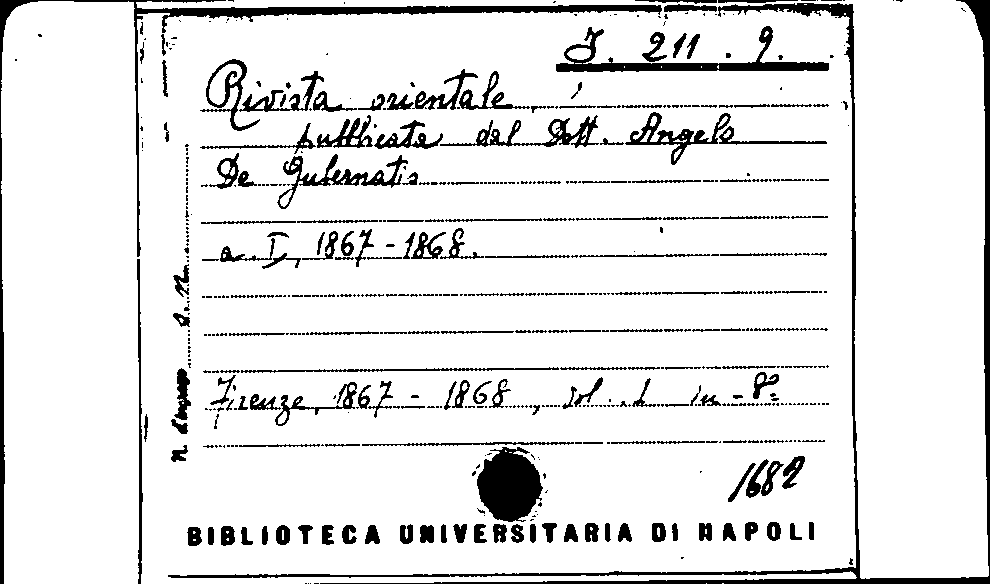 J. 211. 9.
Rivista orientale.
pubblicata dal Dott. Angelo
De Gubernatis
a. I, 1867-1868.
Firenze, 1867 - 1868, vol. 1 in-8º
1682
N. d'ingresso S. N.
BIBLIOTECA UNIVERSITARIA DI NAPOLI